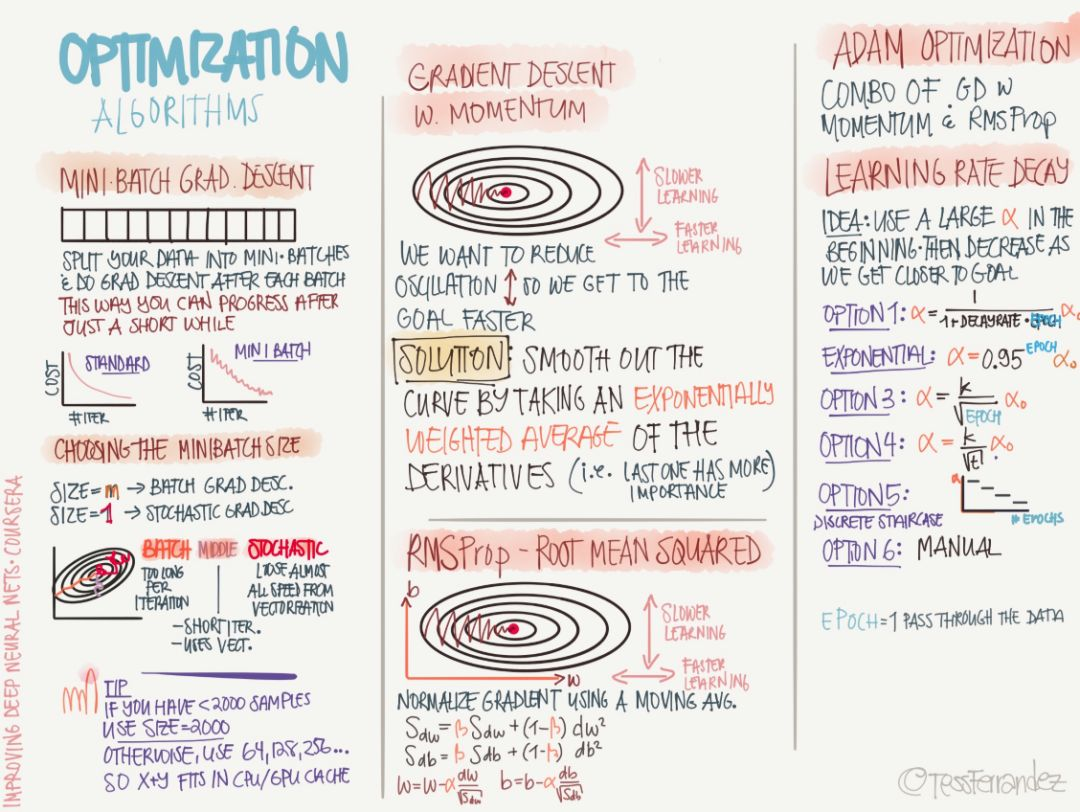 OPTIMIZATION
ALGORITHMS
MINI-BATCH GRAD. DESCENT
SPLIT YOUR DATA INTO MINI-BATCHES
& DO GRAD DESCENT AFTER EACH BATCH
THIS WAY YOU CAN PROGRESS AFTER
JUST A SHORT WHILE
COST
STANDARD
# ITER
COST
MINI BATCH
# ITER
CHOOSING THE MINIBATCH SIZE
SIZE = m → BATCH GRAD DESC.
SIZE = 1 → STOCHASTIC GRAD DESC
BATCH MIDDLE STOCHASTIC
TOO LONG
PER
ITERATION
LOSE ALMOST
ALL SPEED FROM
VECTORIZATION
- SHORT ITER.
- USES VECT.
TIP
IF YOU HAVE < 2000 SAMPLES
USE SIZE = 2000
OTHERWISE, USE 64, 128, 256...
SO X+Y FITS IN CPU/GPU CACHE
IMPROVING DEEP NEURAL NETS · COURSERA
GRADIENT DESCENT
W. MOMENTUM
SLOWER
LEARNING
FASTER
LEARNING
WE WANT TO REDUCE
OSCILLATION ↕ SO WE GET TO THE
GOAL FASTER
SOLUTION: SMOOTH OUT THE
CURVE BY TAKING AN EXPONENTIALLY
WEIGHTED AVERAGE OF THE
DERIVATIVES (i.e. LAST ONE HAS MORE
IMPORTANCE)
RMSProp - ROOT MEAN SQUARED
b
w
SLOWER
LEARNING
FASTER
LEARNING
NORMALIZE GRADIENT USING A MOVING AVG.
Sdw = β Sdw + (1-β) dw²
Sdb = β Sdb + (1-β) db²
w = w - α dw/√Sdw b = b - α db/√Sdb
ADAM OPTIMIZATION
COMBO OF GD W
MOMENTUM & RMSProp
LEARNING RATE DECAY
IDEA: USE A LARGE α IN THE
BEGINNING · THEN DECREASE AS
WE GET CLOSER TO GOAL
OPTION 1: α = 1/(1 + DECAYRATE · EPOCH) α₀
EXPONENTIAL: α = 0.95^EPOCH α₀
OPTION 3: α = k/√EPOCH α₀
OPTION 4: α = k/√t α₀
OPTION 5:
DISCRETE STAIRCASE
α
# EPOCHS
OPTION 6: MANUAL
EPOCH = 1 PASS THROUGH THE DATA
©TessFerrandez